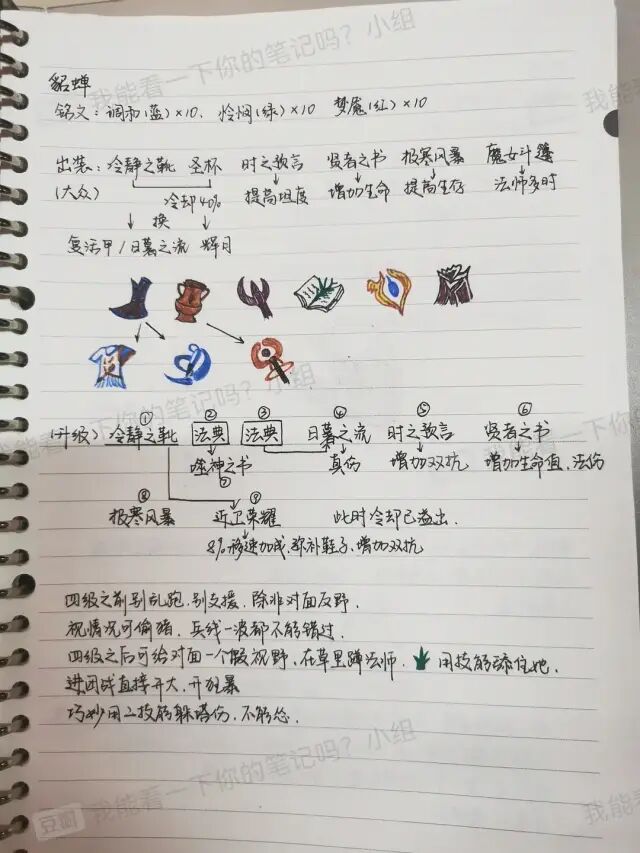 我能看一下你的笔记吗？小组
我能看
貂蝉
铭文：调和(蓝)×10、怜悯(绿)×10 梦魇(红)×10
出装：冷静之靴 圣杯 时之预言 贤者之书 极寒风暴 魔女斗篷
(大众) 冷却40% 提高坦度 增加生命 提高生存 法师多时
换
复活甲/日暮之流 辉月
我能看一下你的笔记吗？小组
① ② ③ ④ ⑤ ⑥
(升级) 冷静之靴 法典 法典 日暮之流 时之预言 贤者之书
噬神之书 真伤 增加双抗 增加生命值、法伤
⑦
⑧ ⑨
极寒风暴 近卫荣耀 此时冷却已益出.
8%移速加成、弥补鞋子、增加双抗
四级之前别乱跑、别支援、除非对面反野.
视情况可偷猪、兵线一波都不能错过.
四级之后可给对面一个假视野、在草里蹲法师. 用技能舔住她.
进团战直接开大、开狂暴
巧妙用二技能躲塔伤、不能怂.
豆瓣 我能看一下你的笔记吗？小组
我能看